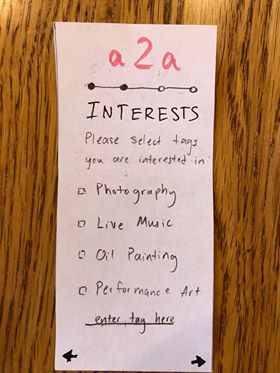 a2a
INTERESTS
Please select tags
you are interested in:
Photography
Live Music
Oil Painting
Performance Art
enter tag here